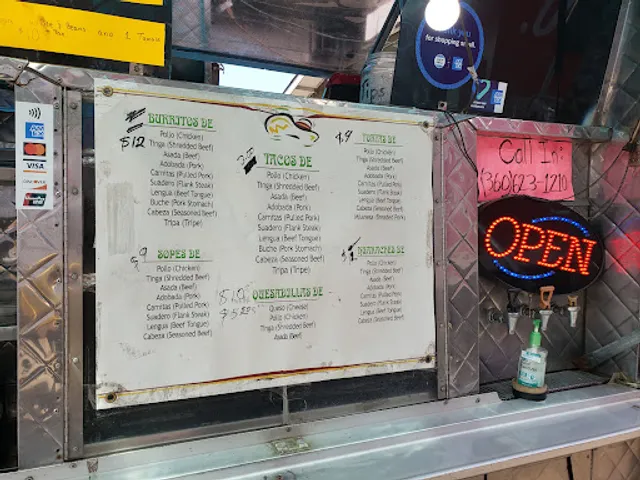 Beans and 1 Tamale
Thank you
for shopping small.
VISA
BURRITOS DE
$12
Pollo (Chicken)
Tinga (Shredded Beef)
Asada (Beef)
Adobada (Pork)
Carnitas (Pulled Pork)
Suadero (Flank Steak)
Lengua (Beef Tongue)
Buche (Pork Stomach)
Cabeza (Seasoned Beef)
Tripa (Tripe)
TACOS DE
Pollo (Chicken)
Tinga (Shredded Beef)
Asada (Beef)
Adobada (Pork)
Carnitas (Pulled Pork)
Suadero (Flank Steak)
Lengua (Beef Tongue)
Buche (Pork Stomach)
Cabeza (Seasoned Beef)
Tripa (Tripe)
TORTAS DE
Pollo (Chicken)
Tinga (Shredded Beef)
Asada (Beef)
Adobada (Pork)
Carnitas (Pulled Pork)
Suadero (Flank Steak)
Lengua (Beef Tongue)
Milanesa (Breaded Pork)
SOPES DE
Pollo (Chicken)
Tinga (Shredded Beef)
Asada (Beef)
Adobada (Pork)
Carnitas (Pulled Pork)
Suadero (Flank Steak)
Lengua (Beef Tongue)
Cabeza (Seasoned Beef)
QUESADILLAS DE
Queso (Cheese)
Pollo (Chicken)
Tinga (Shredded Beef)
Asada (Beef)
HUARACHES DE
Pollo (Chicken)
Tinga (Shredded Beef)
Asada (Beef)
Adobada (Pork)
Carnitas (Pulled Pork)
Suadero (Flank Steak)
Lengua (Beef Tongue)
Cabeza (Seasoned Beef)
Call In:
(360)623-1210
OPEN